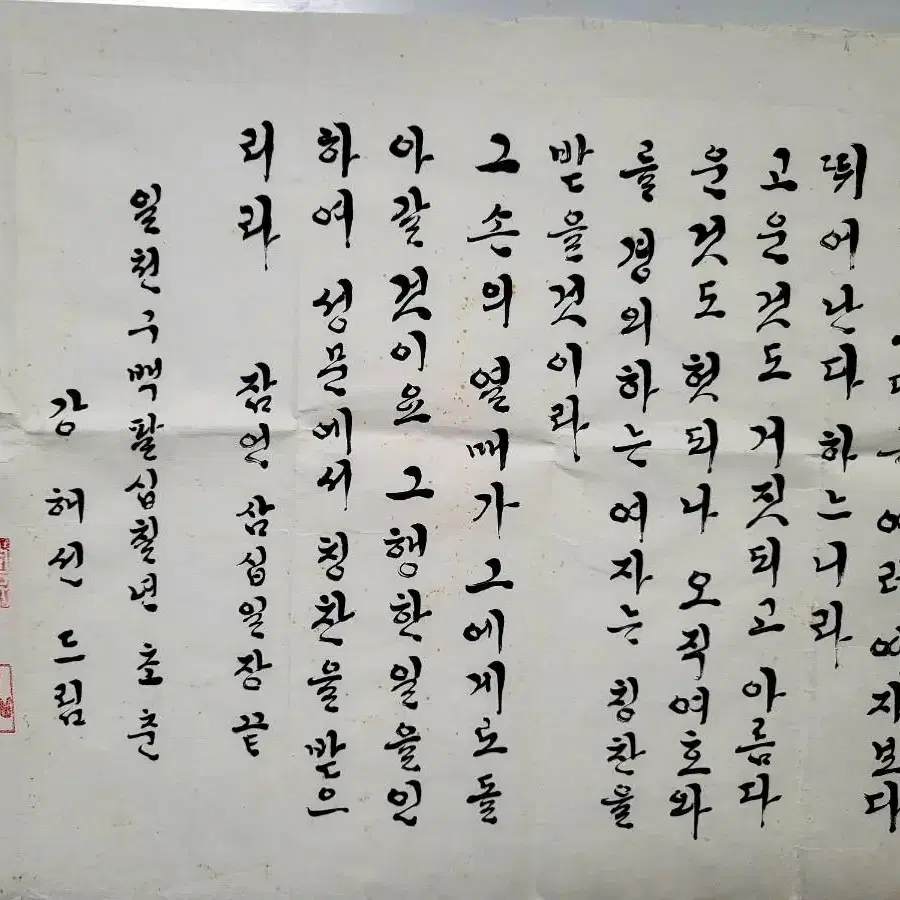 여러 여자보다
뛰어난다 하느니라
고운것도 거짓되고 아름다
운것도 헛되나 오직여호와
를 경외하는 여자는 칭찬을
받을것이라
그손의 열매가 그에게로돌
아갈것이요 그행한일을인
하여 성문에서 칭찬을받으
리라 잠언 삼십일장 끝
일천구백팔십칠년 초춘
강 해선 드림